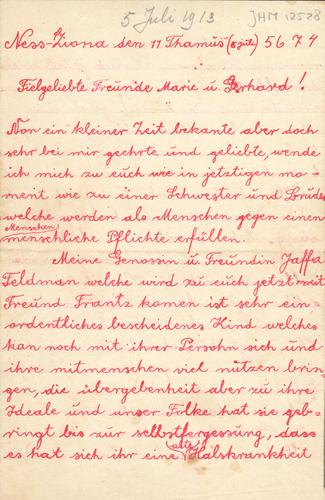 5 Juli 1913
JHM 12528
Ness-Ziona den 11 Thamus (5 juli) 5674
Fielgeliebte Freunde Marie u. Gerhard!
Non ein kleiner Zeit bekante aber doch
sehr bei mir geehrte und geliebte, wende
ich mich zu euch wie in jetztigen mo-
ment wie zu einer Schwester und Bruder
welche werden als Menschen gegen einen
Menschen
menschliche Pflichte erfüllen.
Meine Genossin u. Freundin Jaffa
Feldman welche wird zu euch jetzt mit
Freund Frantz komen ist sehr ein
ordentliches bescheidenes Kind welches
kan noch mit ihrer Persohn sich und
ihre mitmenschen viel nutzen brin-
gen, die übergebenheit aber zu ihre
Ideale und unser Folke hat sie geb-
ringt bis zur selbstfergessung, dass
alte
es hat sich ihr eine Halskrankheit